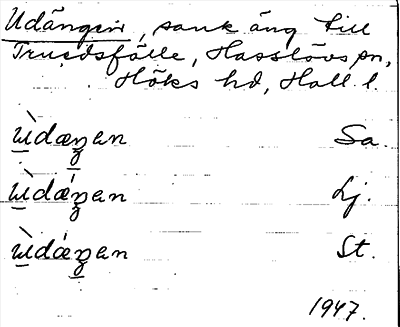 Udängen, sank äng till
Truedsfälle, Hasslövs sn,
Höks hd, Hall. l.
ùdæŋen Sa.
ùdǽŋen Lj.
ùdáŋen St.
1947.